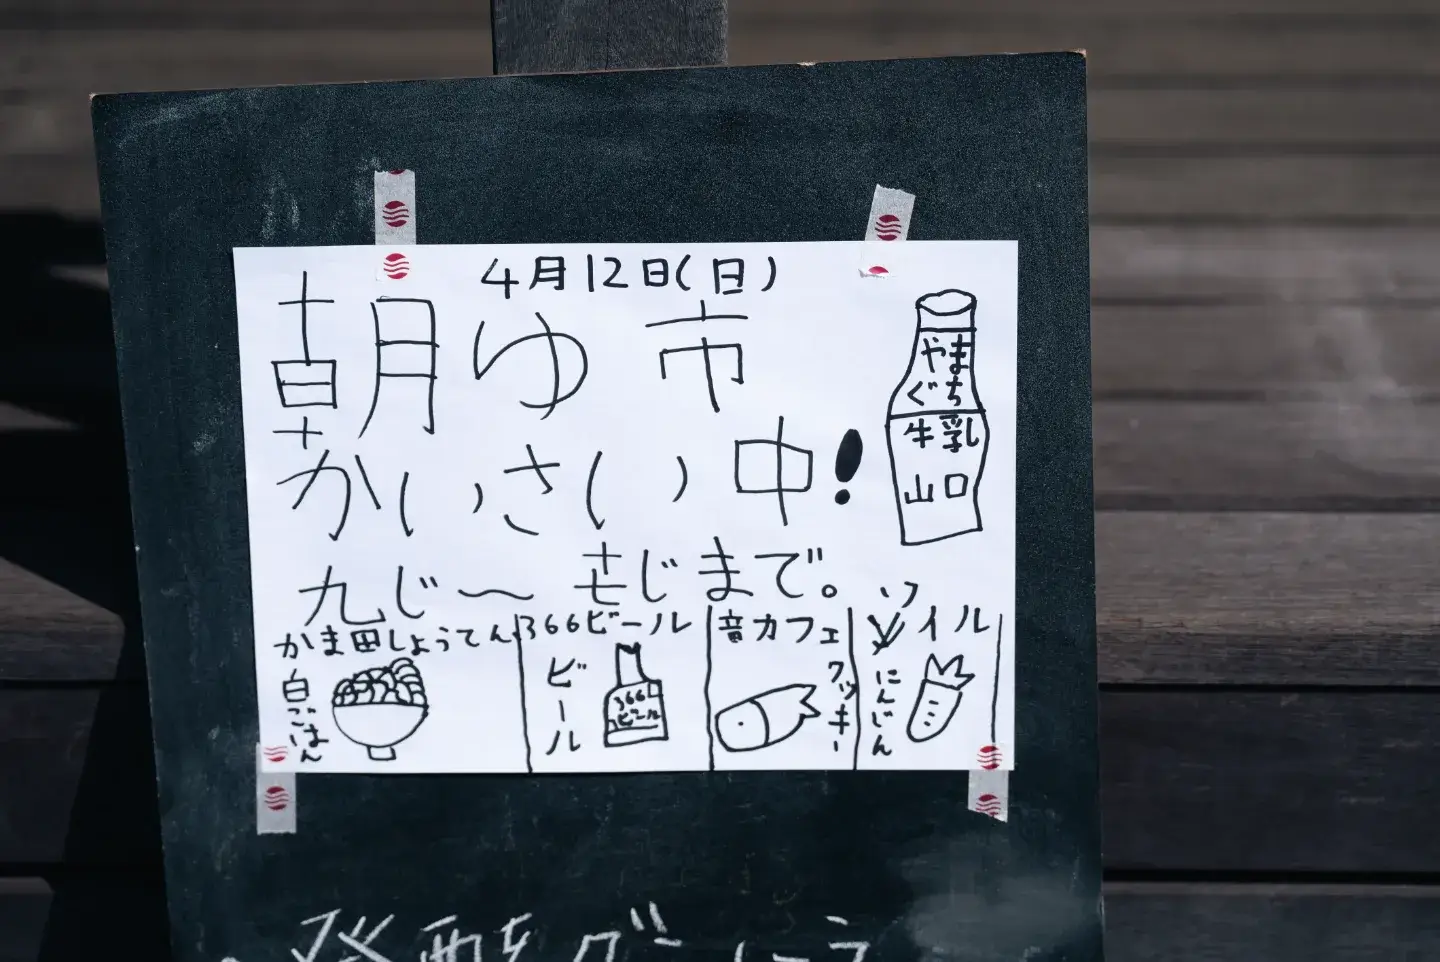 4月12日(日)
朝ゆ市
かいさい中!
九じ〜
じまで。
やまぐち
牛乳
山口
かま田しょうてん
白ごはん
366ビール
ビール
366
ビール
音カフェ
クッキー
ソイル
にんじん